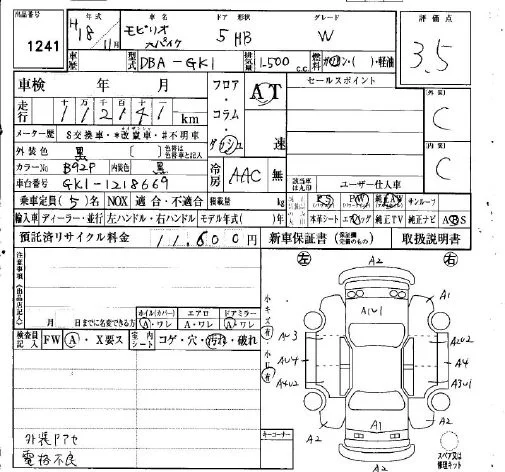 出品番号 年式 車名 ドア 形状 グレード 評価点
1241 H18 11月 モビリオ スパイク 5 HB W 3.5
車歴 型式 DBA-GK1 排気量 1.500 c.c. 燃料 ガソリン・( )・軽油
車検 年 月 フロア・コラム・ダッシュ AT 速 セールスポイント 外装 C
走行 十万千百十一 km
メーター歴 $交換車・*改ざん車・#不明車
外装色 黒 [ ] 色替は色替車と記入 内装 C
カラーNo B92P 内装色 黒 冷房 AAC 無
車台番号 GK1-1218669 該当車は丸印 ユーザー仕入車
乗車定員(5)名 NOX 適合・不適合 積載量 kg PS PW 純正AW サンルーフ
輸入車 ディーラー・並行 左ハンドル・右ハンドル モデル年式( )年 本革シート エアバッグ 純正TV 純正ナビ ABS
預託済リサイクル料金 11,600円 新車保証書 (保証欄完備のもの) 取扱説明書
注意事項(出品店記入) 左 右
A2
小キズ有 A1
A1U1
月 日までに名変できる方 ホイル(カバー) エアロ ドアミラー
A・ワレ A・ワレ A・ワレ
検査員記入 FW A・X要ス 室内シート コゲ・穴・汚れ・破れ
AU3 A2U2
小ヘコ有 AU4 A4
A4U2 A3U1
外装Pアセ
電格不良
キーコーナー
A2 A1 A2
A2
スペア又は修理キット